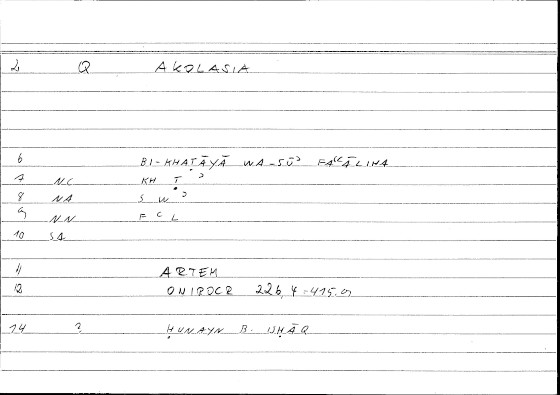 2 Q AKOLASIA
6 BI-KHAṬĀYĀ WA-SŪʾ FAʿʿĀLIHA
7 NC KH Ṭ ʾ
8 NA S W ʾ
9 NN F ʿ L
10 SA
11 ARTEM
12 ONIROCR 226, 4 = 415.9
14 ? ḤUNAYN B. ISḤĀQ